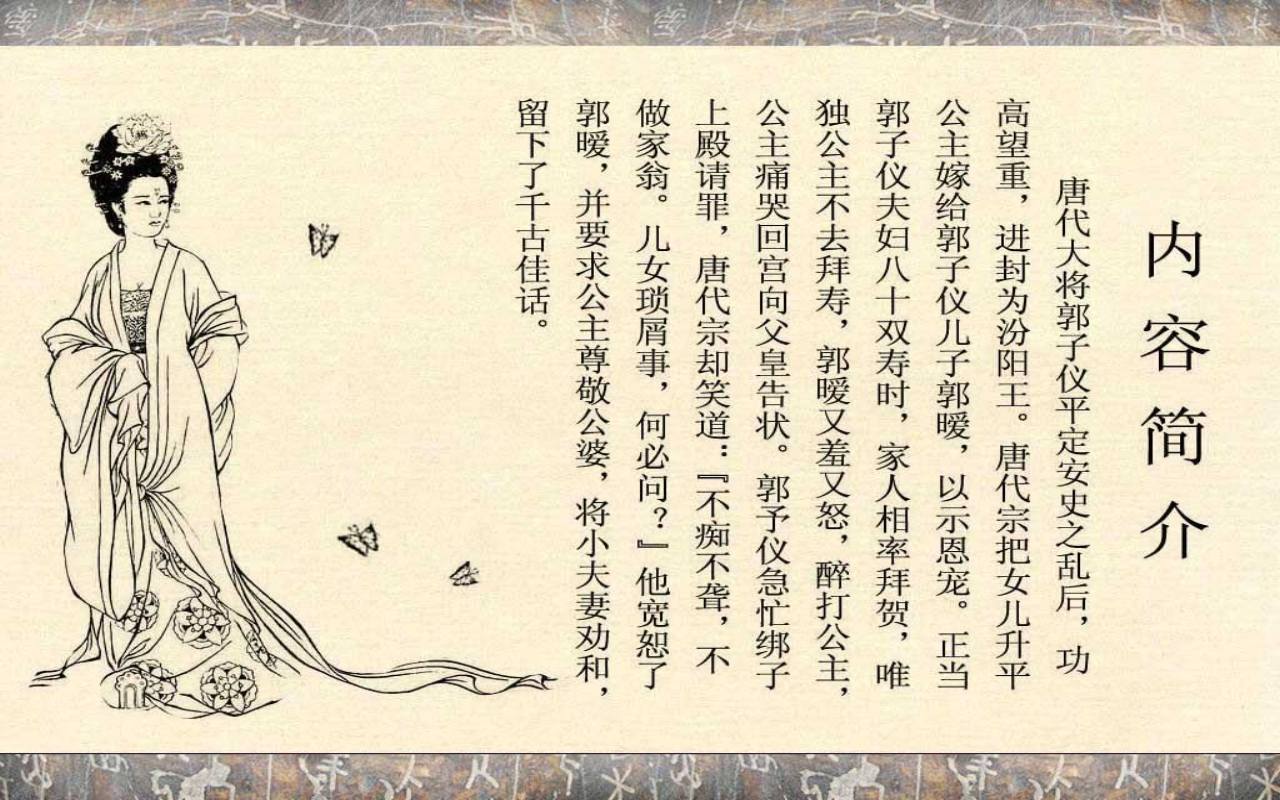 内容简介
唐代大将郭子仪平定安史之乱后，功
高望重，进封为汾阳王。唐代宗把女儿升平
公主嫁给郭子仪儿子郭暧，以示恩宠。正当
郭子仪夫妇八十双寿时，家人相率拜贺，唯
独公主不去拜寿，郭暧又羞又怒，醉打公主，
公主痛哭回宫向父皇告状。郭予仪急忙绑子
上殿请罪，唐代宗却笑道：『不痴不聋，不
做家翁。儿女琐屑事，何必问？』他宽恕了
郭暧，并要求公主尊敬公婆，将小夫妻劝和，
留下了千古佳话。